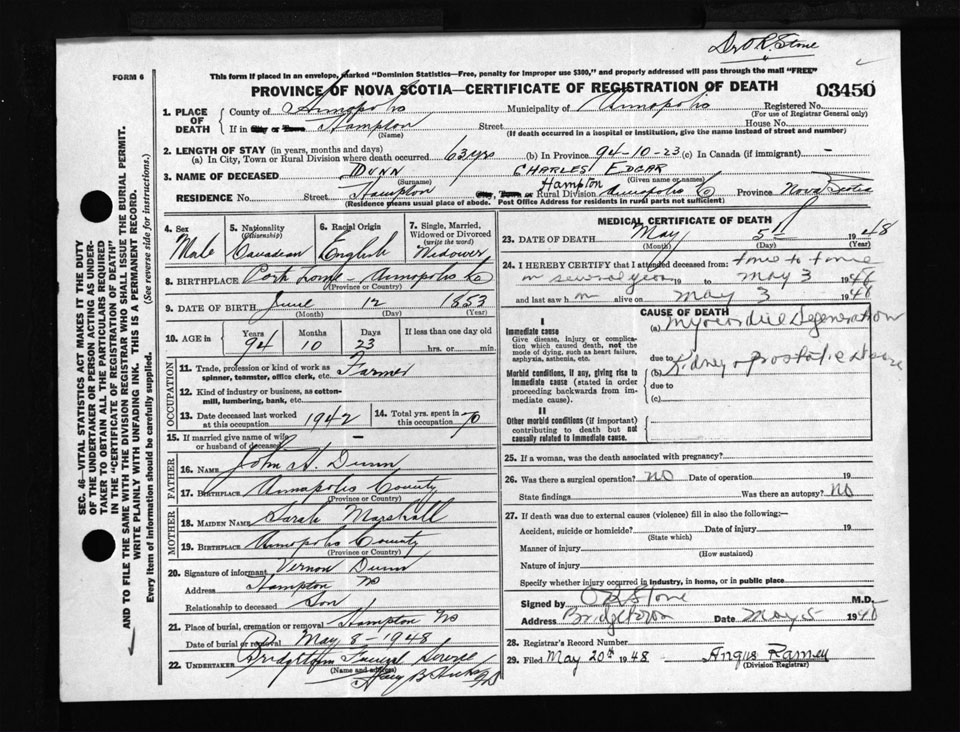 Dr O R Stone
FORM 6
This form if placed in an envelope, marked "Dominion Statistics—Free, penalty for improper use $300," and properly addressed will pass through the mail "FREE"
PROVINCE OF NOVA SCOTIA—CERTIFICATE OF REGISTRATION OF DEATH
03450
1. PLACE OF DEATH
County of Annapolis Municipality of Annapolis Registered No.
(For use of Registrar General only)
If in City or Town Hampton Street House No.
(Name) (If death occurred in a hospital or institution, give the name instead of street and number)
2. LENGTH OF STAY (in years, months and days)
(a) In City, Town or Rural Division where death occurred 63 yrs (b) In Province 94-10-23 (c) In Canada (if immigrant) -
3. NAME OF DECEASED DUNN CHARLES EDGAR
(Surname) (Given name or names)
RESIDENCE No. Street Hampton City, Town or Rural Division Hampton Annapolis Co Province Nova Scotia
(Residence means usual place of abode. Post Office Address for residents in rural parts not sufficient)
4. Sex
Male
5. Nationality
(Citizenship)
Canadian
6. Racial Origin
English
7. Single, Married, Widowed or Divorced
(write the word)
Widower
8. BIRTHPLACE Port Lorne - Annapolis Co
(Province or Country)
9. DATE OF BIRTH June 12 1853
(Month) (Day) (Year)
10. AGE in
Years Months Days If less than one day old
94 10 23 hrs. or min.
OCCUPATION
11. Trade, profession or kind of work as spinner, teamster, office clerk, etc. Farmer
12. Kind of industry or business, as cotton-mill, lumbering, bank, etc.
13. Date deceased last worked at this occupation 1942
14. Total yrs. spent in this occupation 70
15. If married give name of wife or husband of deceased
FATHER
16. NAME John H. Dunn
17. BIRTHPLACE Annapolis County
(Province or Country)
MOTHER
18. MAIDEN NAME Sarah Marshall
19. BIRTHPLACE Annapolis County
(Province or Country)
20. Signature of informant Vernon Dunn
Address Hampton NS
Relationship to deceased Son
21. Place of burial, cremation or removal Hampton NS
Date of burial or removal May 8 - 1948
22. UNDERTAKER Bridgetown Funeral
(Name and address)
MEDICAL CERTIFICATE OF DEATH
23. DATE OF DEATH May 5 1948
(Month) (Day) (Year)
24. I HEREBY CERTIFY that I attended deceased from: time to time
in several years 19 to May 3 1948
and last saw h m alive on May 3 1948
CAUSE OF DEATH
I
Immediate cause
Give disease, injury or complication which caused death, not the mode of dying, such as heart failure, asphyxia, asthenia, etc.
(a) Myocardial Degeneration
due to
Morbid conditions, if any, giving rise to immediate cause (stated in order proceeding backwards from immediate cause).
(b) Kidney & prostatic disease
due to
(c)
II
Other morbid conditions (if important) contributing to death but not causally related to immediate cause.
25. If a woman, was the death associated with pregnancy?
26. Was there a surgical operation? NO Date of operation 19
State findings Was there an autopsy? NO
27. If death was due to external causes (violence) fill in also the following:—
Accident, suicide or homicide? Date of injury 19
(State which)
Manner of injury
(How sustained)
Nature of injury
Specify whether injury occurred in industry, in home, or in public place
Signed by O R Stone M.D.
Address Bridgetown Date May 5 1948
28. Registrar's Record Number
29. Filed May 20th 1948 Angus Ramey
(Division Registrar)
SEC. 46—VITAL STATISTICS ACT MAKES IT THE DUTY
OF THE UNDERTAKER OR PERSON ACTING AS UNDER-
TAKER TO OBTAIN ALL THE PARTICULARS REQUIRED
IN THE "CERTIFICATE OF REGISTRATION OF DEATH"
AND TO FILE THE SAME WITH THE DIVISION REGISTRAR WHO SHALL ISSUE THE BURIAL PERMIT.
WRITE PLAINLY WITH UNFADING INK. THIS IS A PERMANENT RECORD.
Every item of information should be carefully supplied. (See reverse side for instructions.)